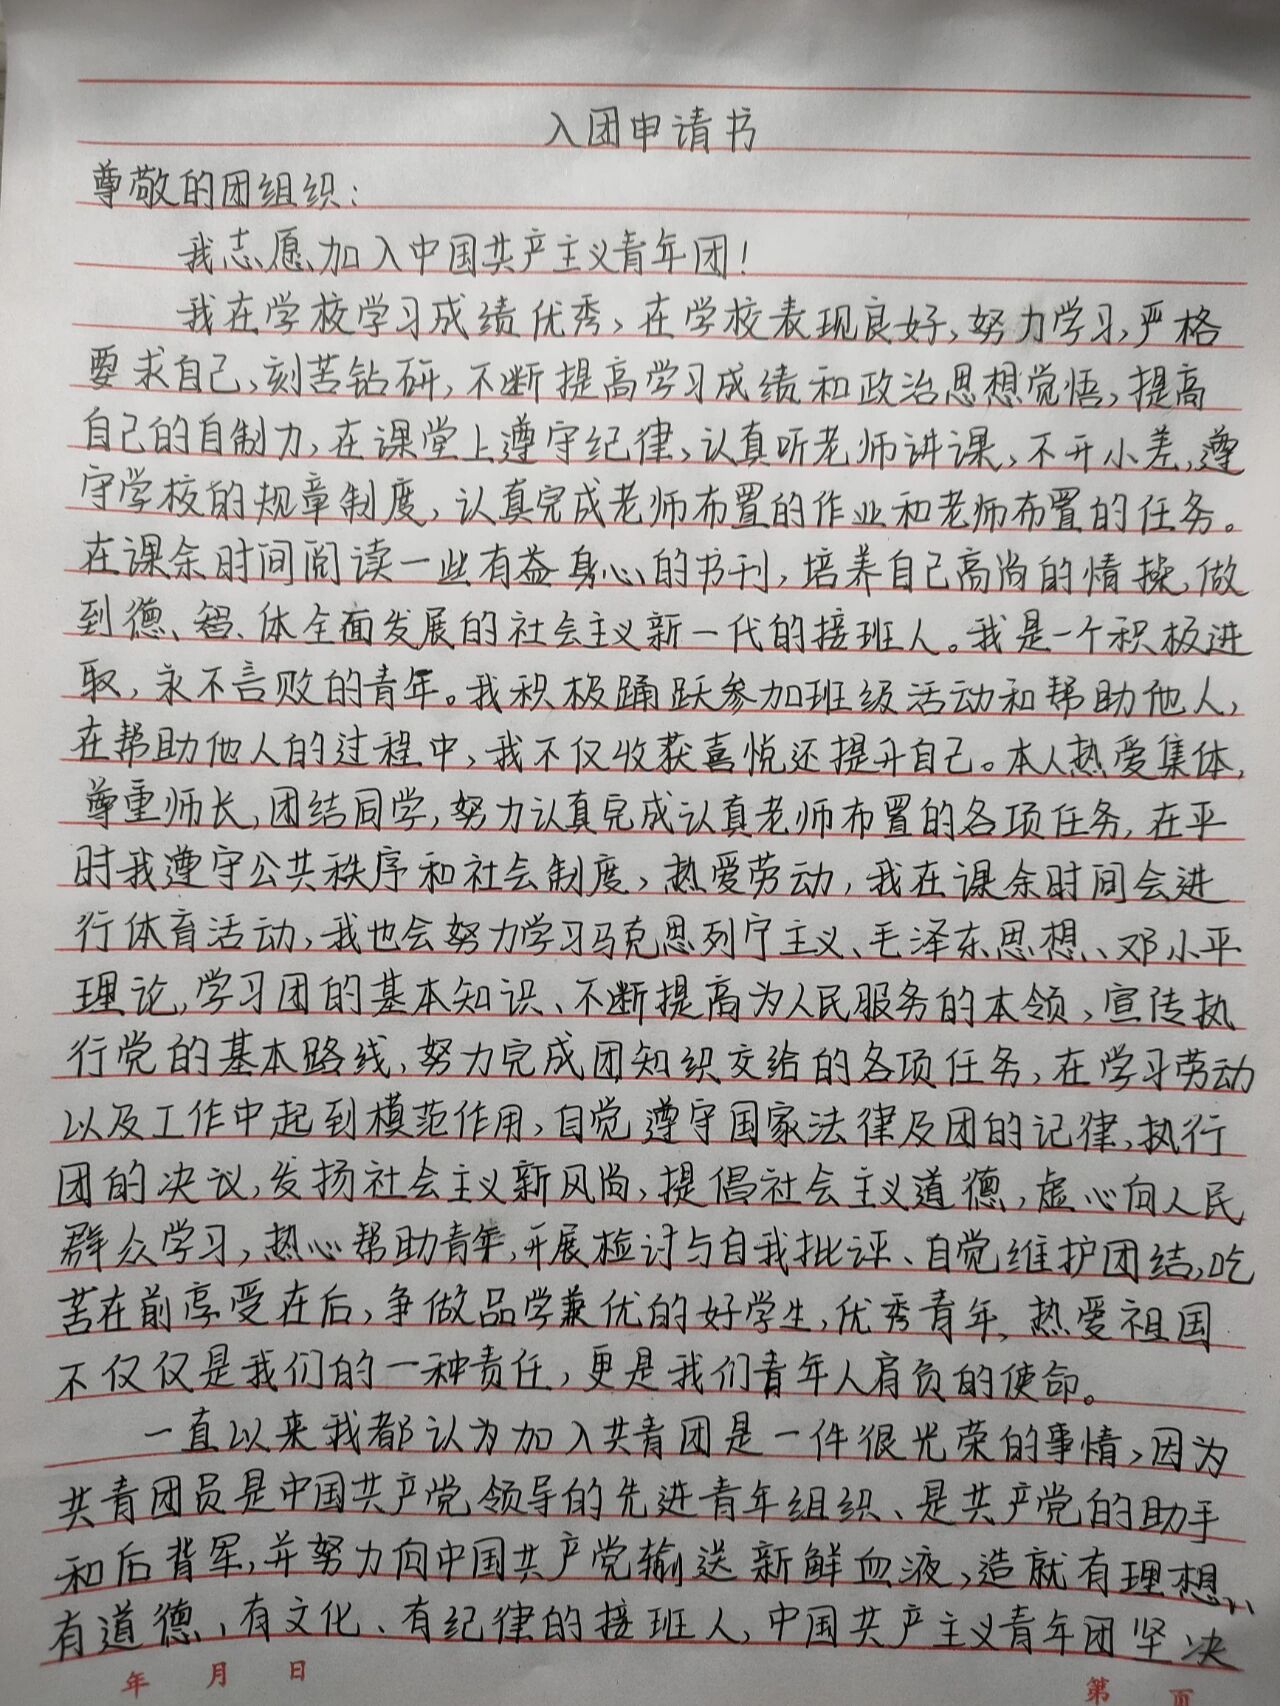 入团申请书
尊敬的团组织:
我志愿加入中国共产主义青年团!
我在学校学习成绩优秀,在学校表现良好,努力学习,严格
要求自己,刻苦钻研,不断提高学习成绩和政治思想觉悟,提高
自己的自制力,在课堂上遵守纪律,认真听老师讲课,不开小差,遵
守学校的规章制度,认真完成老师布置的作业和老师布置的任务。
在课余时间阅读一些有益身心的书刊,培养自己高尚的情操,做
到德、智、体全面发展的社会主义新一代的接班人。我是一个积极进
取,永不言败的青年。我积极踊跃参加班级活动和帮助他人,
在帮助他人的过程中,我不仅收获喜悦还提升自己。本人热爱集体,
尊重师长,团结同学,努力认真完成认真老师布置的各项任务,在平
时我遵守公共秩序和社会制度,热爱劳动,我在课余时间会进
行体育活动,我也会努力学习马克思列宁主义、毛泽东思想、邓小平
理论,学习团的基本知识、不断提高为人民服务的本领,宣传执
行党的基本路线,努力完成团知织交给的各项任务,在学习劳动
以及工作中起到模范作用,自觉遵守国家法律及团的记律,执行
团的决议,发扬社会主义新风尚,提倡社会主义道德,虚心向人民
群众学习,热心帮助青年,开展检讨与自我批评、自觉维护团结,吃
苦在前享受在后,争做品学兼优的好学生,优秀青年,热爱祖国
不仅仅是我们的一种责任,更是我们青年人肩负的使命。
一直以来我都认为加入共青团是一件很光荣的事情,因为
共青团员是中国共产党领导的先进青年组织、是共产党的助手
和后背军,并努力向中国共产党输送新鲜血液,造就有理想、
有道德、有文化、有纪律的接班人,中国共产主义青年团坚决
年 月 日 第 页